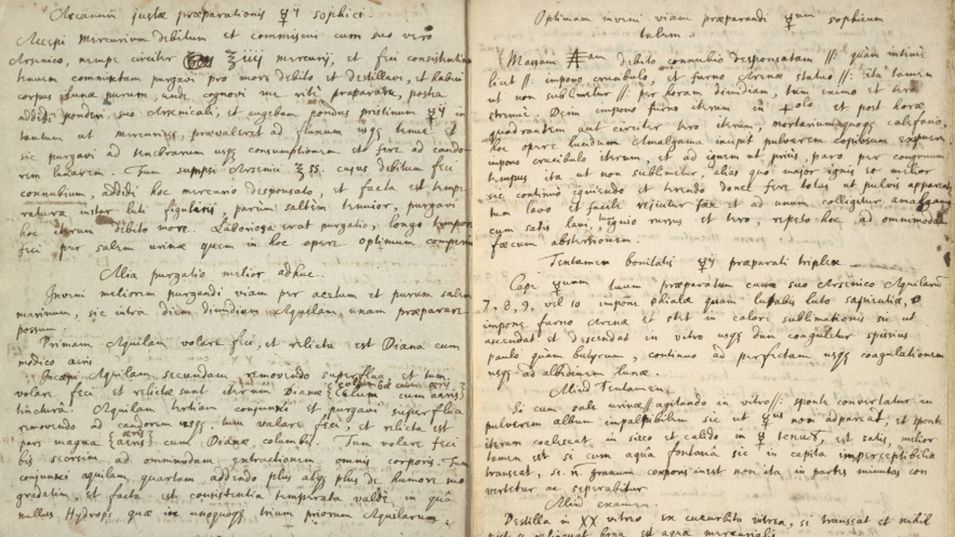 Arcanum justæ præparationis ☿ij sophici.
Accepi mercurium debitum et commiscui cum suo vero
Arsenico, nempe circiter ʒiiij mercurij, et feci consistentiam
tenuem commixtam purgavi pro more debito et destillavi, et habui
corpus lunæ purum, unde cognovi me rite præparare, postea
addidi ponderi suo Arsenicali, et augebam pondus pristinum ☿ij in
tantum ut mercurius prævaleret ad fluxum usqꝫ tenue et
sic purgavi ad tenebrarum usqꝫ consumptionem et fere ad cando-
rem lunarem. Tum sumpsi Arsenici ʒss. cujus debitum feci
connubium, addidi hoc mercurio desponsato, et facta est tempe-
ratura instar luti figularij, parum saltem tenuior, purgavi
hoc iterum debito more. Laboriosa erat purgatio, longo tempore
feci per salem urinæ quem in hoc opere optimum comperi
Alia purgatio melior adhuc.
Inveni meliorem purgandi viam per acetum et purum salem
marinum, sic intra diem dimidium Aquilam unam præparare
possum.
Primam Aquilam volare feci, et relicta est Diana cum
modico æris
Incæpi Aquilam secundam removendo superflua et tum
volare feci et relictæ sunt iterum Dianæ columbæ cum æris
tinctura. Aquilam tertiam conjunxi et purgavi superflua
removendo ad candorem usqꝫ tum volare feci, et relicta est
pars magna æris cum Dianæ columbis. Tum volare feci
bis seorsim ad ommodam extractionem omnis corporis. Tum
conjunxi aquilam quartam addendo plus atqꝫ plus de humore suo
gradatim, et facta est consistentia temperata valde in quâ
nullus Hydrops quæ in unoquoqꝫ trium priorum Aquilarum.
Optimam inveni viam præparandi ☿um sophicum
talem.
Massam Aam debito connubio desponsatam //: quàm intimè
licet //: impono crucibulo, et furno Arenæ statuo //: ita tamen
ut non sublimetur // per horam dimidiam, tum eximo et tero
strenue. Dein impono furno iterum in +olo et post horæ
quadrantem aut circiter tero iterum, mortariumquoqꝫ calefacio,
hoc opere lucidum Amalgama incipit pulverem copiosum expuere.
impono crucibulo iterum, et ad ignem ut prius, paro per congruum
tempus ita ut non sublimetur, alias quo major ignis eo melior
sic continuo igniendo et terendo donec fere totus ut pulvis appareat
tum lavo et facile rejicitur fæx et ad unum colligitur amalgama
cum satis lavi, igniο rursus et tero; repeto hoc ad ommodam
fæcum abstersionem.
Tentamen bonitatis ☿ij præparati triplex
Cape ☿um tuum præparatum cum suo Arsenico Aquilarum
7, 8, 9, vel 10 impone phialæ quam lutabis luto sapientiæ,
impone furno Arenæ et stet in calore sublimationis sic ut
ascendat et descendat in vitro usqꝫ dum coaguletur spissius
paulo quam butyrum, continuo ad perfectam usqꝫ coagulationem
usqꝫ ad albidinem lunæ.
Aliud Tentamen
Si cum sale urinæ // agitando in vitro // sponte convertatur in
pulverem album impalpabilem sic ut ☿us non appareat, et sponte
iterum coalescat in sicco et calido in ☿ tenuem, est satis, melior
tamen est si cum aqua fontana sic in capita imperceptibilia
transeat, se n̄ granum corporis inest non ita in partes minutas con-
vertetur ac separabitur
Aliud examen.
Destilla in XX vitreo ex cucurbita vitrea, si transeat et nihil